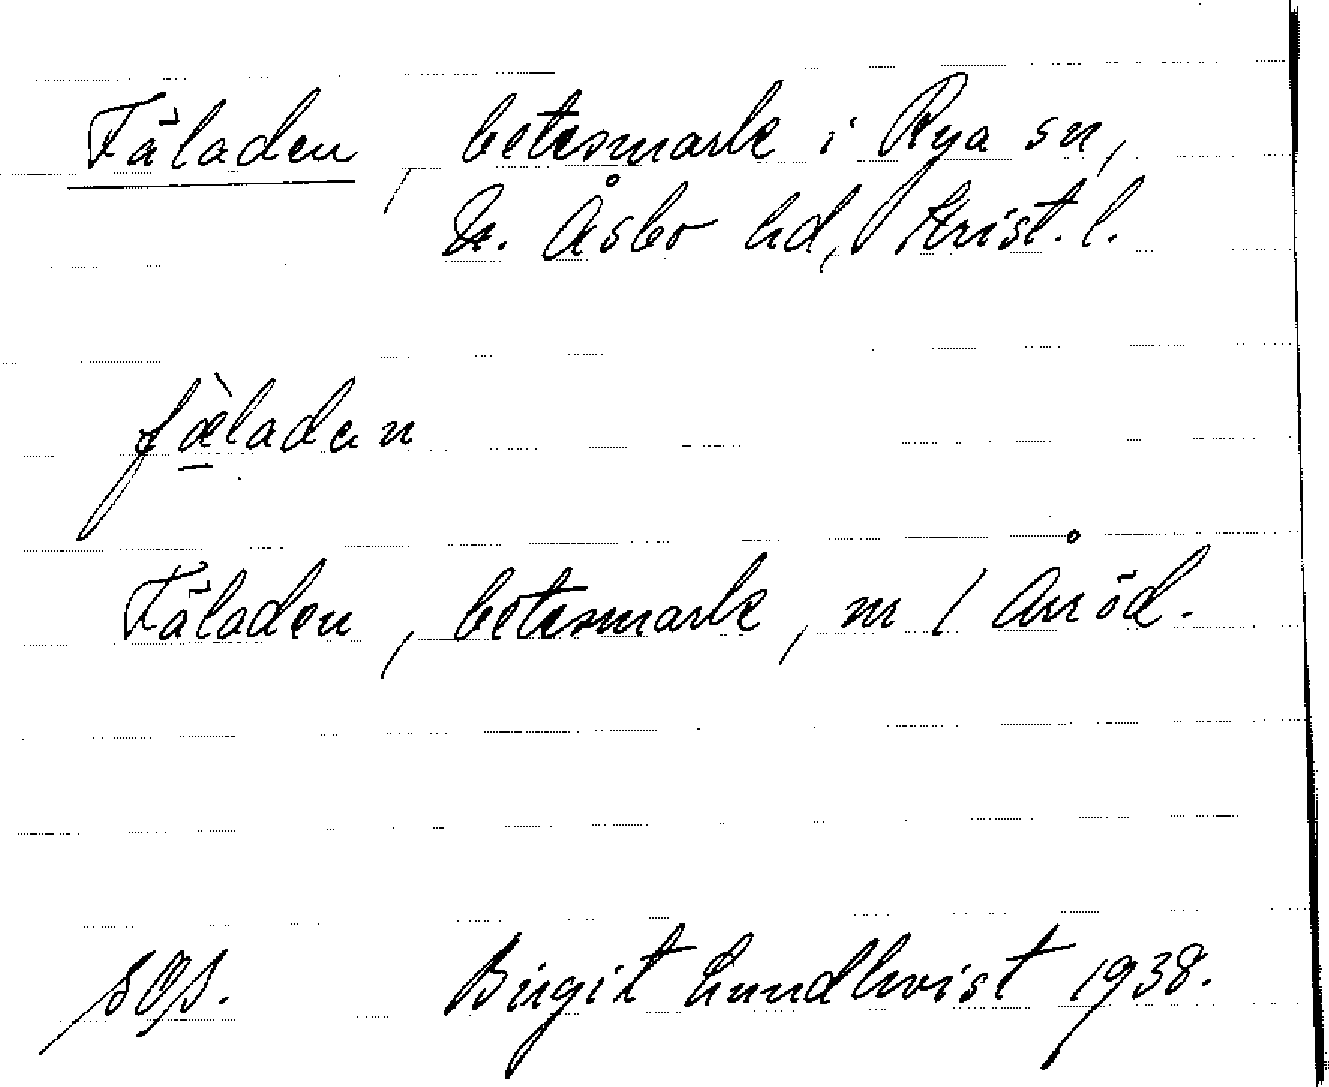 Fäladen, betesmark i Rya sn,
N. Åsbo hd, Krist. l.
fæ̠̀laden
Fäladen, betesmark, m / Anöd.
SOS. Birgit Lundkvist 1938.